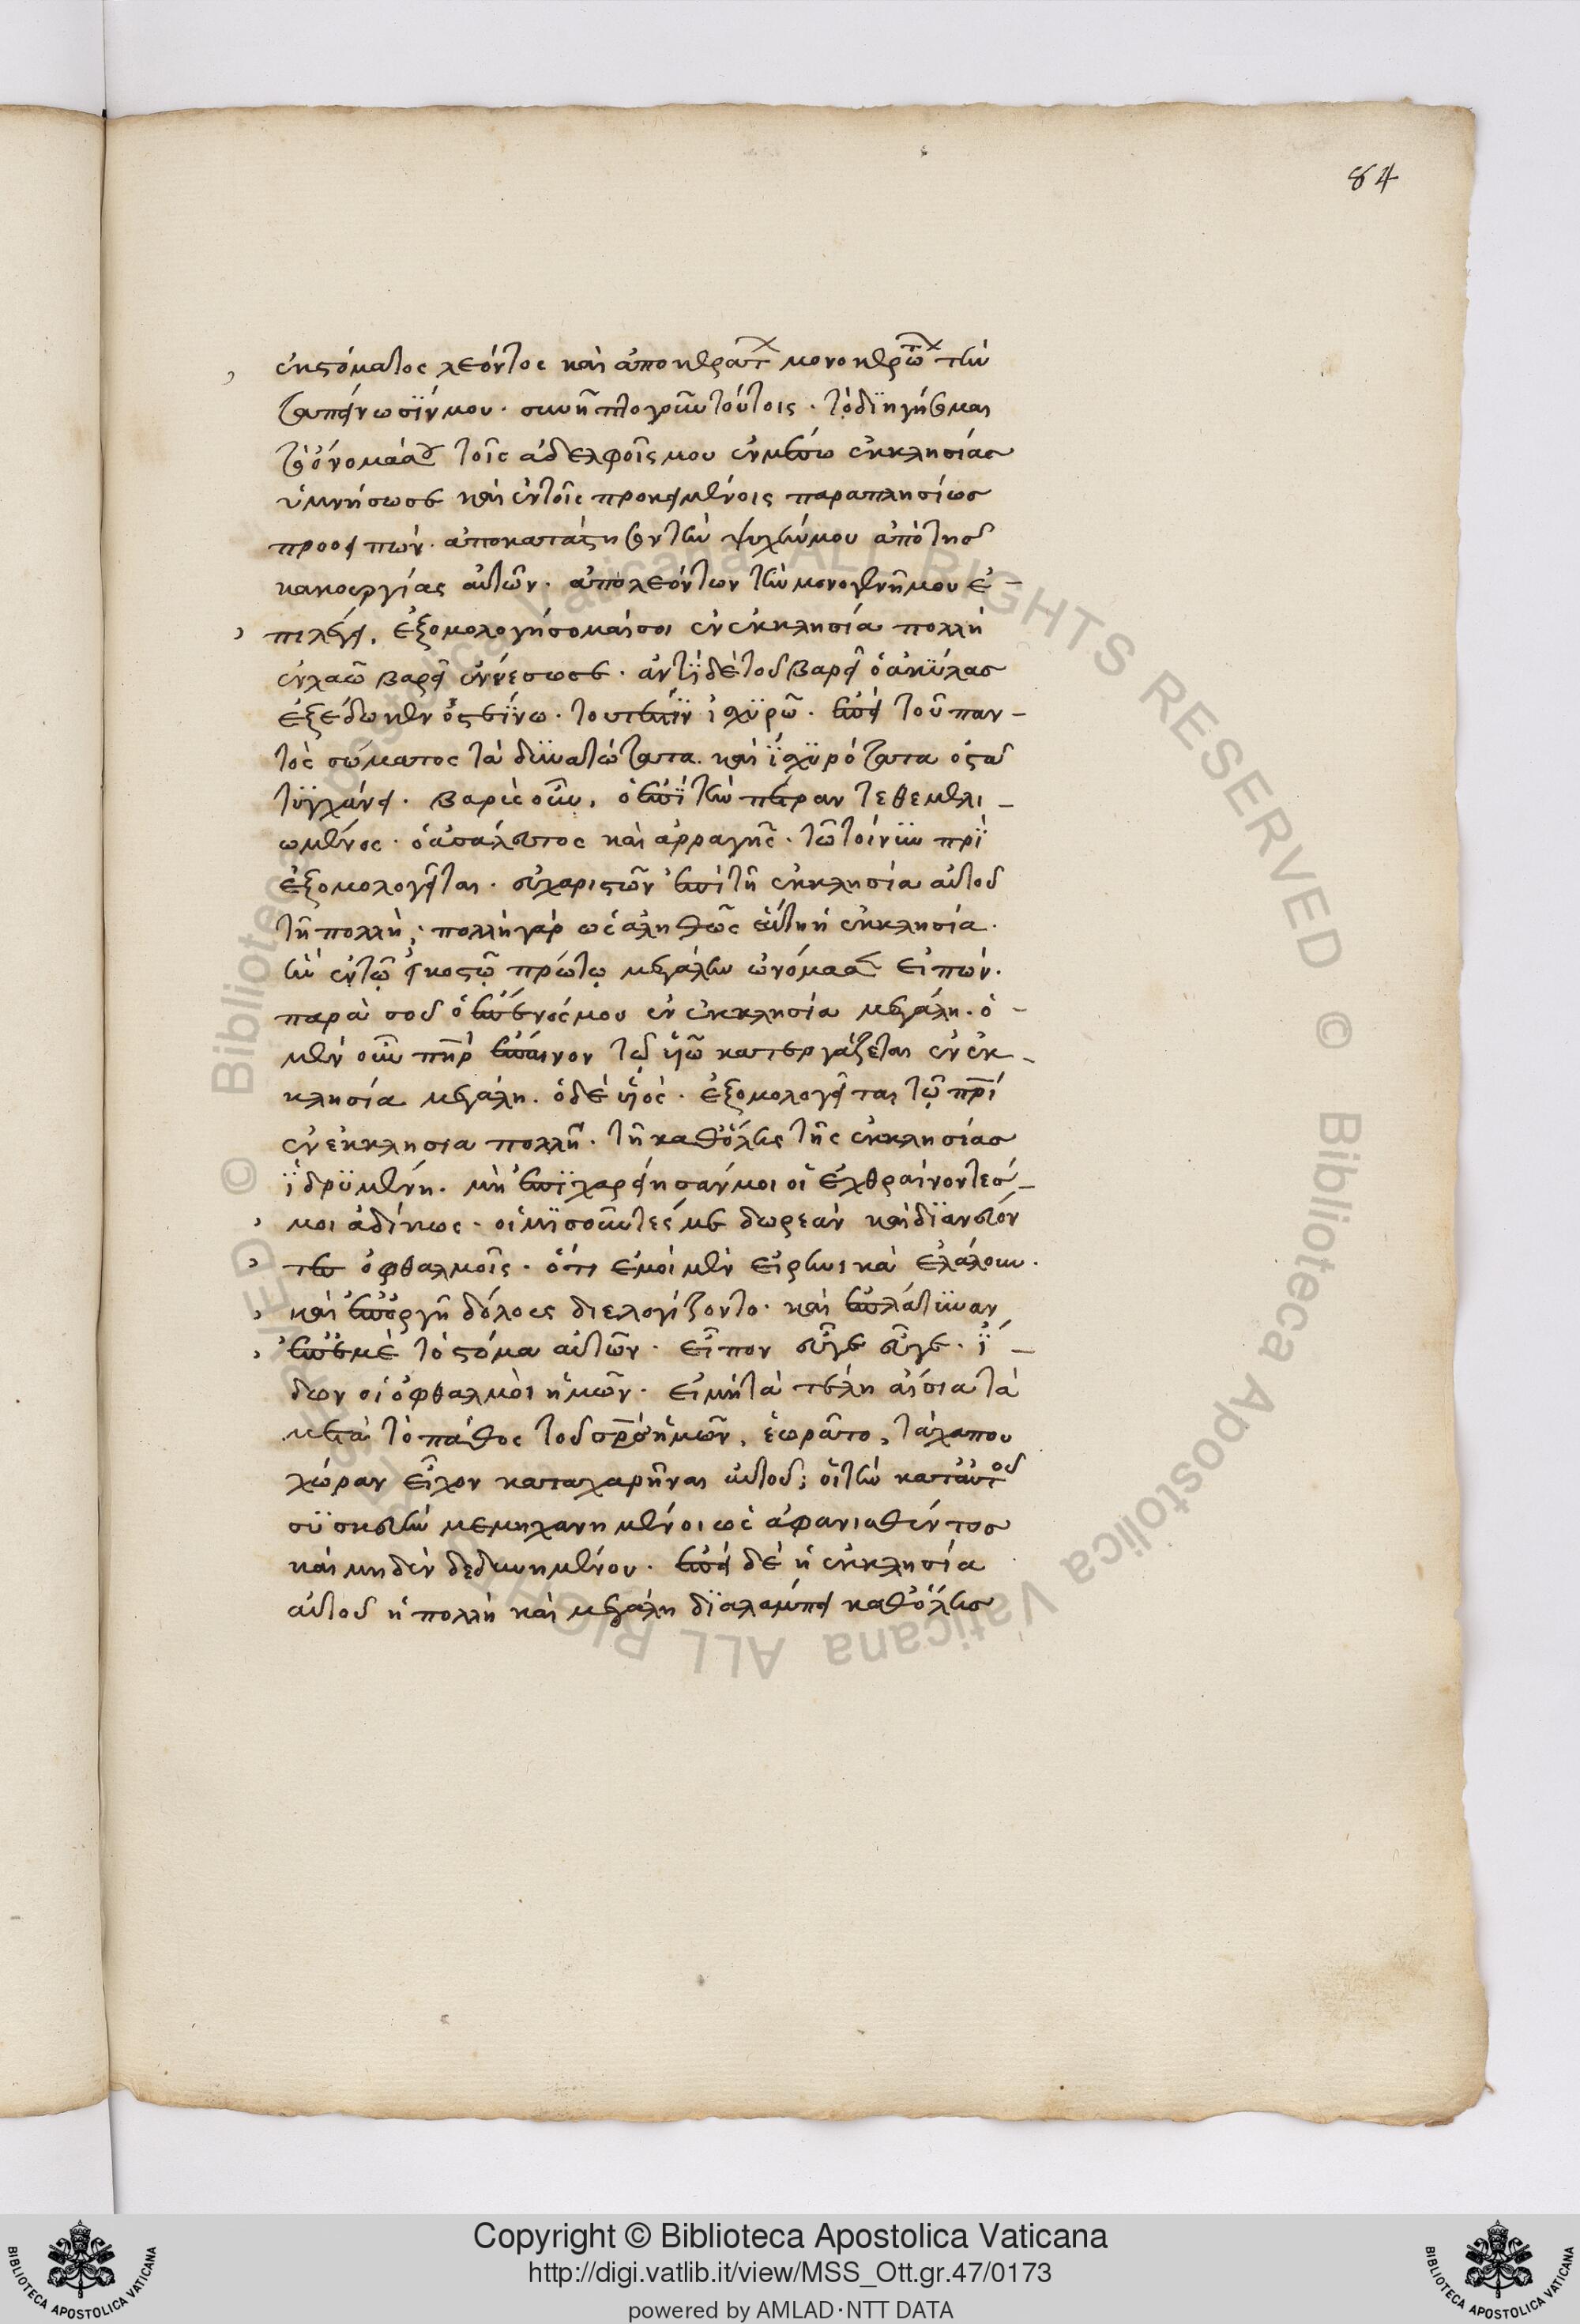 84
ἐκ στόματος λέοντος καὶ ἀπὸ κεράτ μονοκερώτ τὴν
ταπείνωσΐν μου. συνῆπτο γοῦν τούτοις. τὸ διηγήσομαι
τὸ ὄνομά σου τοῖς ἀδελφοῖς μου ἐν μέσω ἐκκλησίας
ὑμνήσω σε καὶ ἐν τοῖς προκειμένοις παραπλησίως
προειπών. ἀποκατάστησον τὴν ψυχήν μου ἀπὸ τῆς
κακουργίας αὐτῶν. ἀπὸ λεόντων τὴν μονογενῆ μου ἐ-
πιλέγει, ἐξομολογήσομαί σοι ἐν ἐκκλησία πολλῆ
ἐν λαῶ βαρεῖ αἰνέσω σε. ἀντὶ δὲ τοῦ βαρεῖ ὁ ἀκύλας
ἐξέδωκεν ὀστεΐνω. τουτέστιν ἰσχυρῶ. ἐπεὶ τοῦ παν-
τὸς σώματος τὰ δυνατώτατα καὶ ἰσχυρότατα ὀστᾶ
τυγχάνει. βαρὺς οὖν, ὁ ἐπὶ τὴν πέτραν τεθεμελι-
ωμένος. ὁ ἀσάλευτος καὶ ἀρραγής. τῶ τοίνυν πρὶ
ἐξομολογεῖται. εὐχαριστῶν ἐπὶ τῆ ἐκκλησία αὐτοῦ
τῆ πολλῆ, πολλὴ γὰρ ὡς ἀληθῶς αὕτη ἡ ἐκκλησία.
ἣν ἐν τῶ εἰκοστῶ πρώτω μεγάλην ὠνόμασεν εἰπών.
παρὰ σοῦ ὁ ἔπαινός μου ἐν ἐκκλησία μεγάλη. ὁ
μὲν οὖν πηρ ἔπαινον τῶ υἱῶ κατεργάζεται ἐν ἐκ-
κλησία μεγάλη. ὁ δὲ υἱὸς. ἐξομολογεῖται τῶ πρὶ
ἐν ἐκκλησια πολλῆ. τῆ καθόλης τῆς ἐκκλησίας
ἱδρυμένη. μὴ ἐπιχαρείησάν μοι οἱ ἐχθραίνοντές
μοι ἀδίκως. οἱ μισοῦντές με δωρεὰν καὶ διανεύον
τες ὀφθαλμοῖς. ὅτι ἐμοὶ μὲν εἰρηνικὰ ἐλάλουν.
καὶ ἐπ ὀργῆ δόλους διελογίζοντο. καὶ ἐπλάτυναν
ἐπ ἐμὲ τὸ στόμα αὐτῶν. εἶπον εὖγε εὖγε. ἴ-
δον οἱ ὀφθαλμοὶ ἡμῶν. εἰ μὴ τὰ τέλη αἴσια τὰ
μετὰ τὸ πάθος τοῦ σρσ ἡμῶν, ἑωρᾶτο, τάχα που
χώραν εἶχον καταχαρῆναι αὐτοῦ; οἱ τὴν κατ αὐτοῦ
συσκευὴν μεμηχανημένοι ὡς ἀφανισθέντος
καὶ μηδὲν δεδυνημένου. ἐπεὶ δὲ ἡ ἐκκλησία
αὐτοῦ ἡ πολλὴ καὶ μεγάλη διαλάμπει καθόλης
Copyright © Biblioteca Apostolica Vaticana
http://digi.vatlib.it/view/MSS_Ott.gr.47/0173
powered by AMLAD·NTT DATA